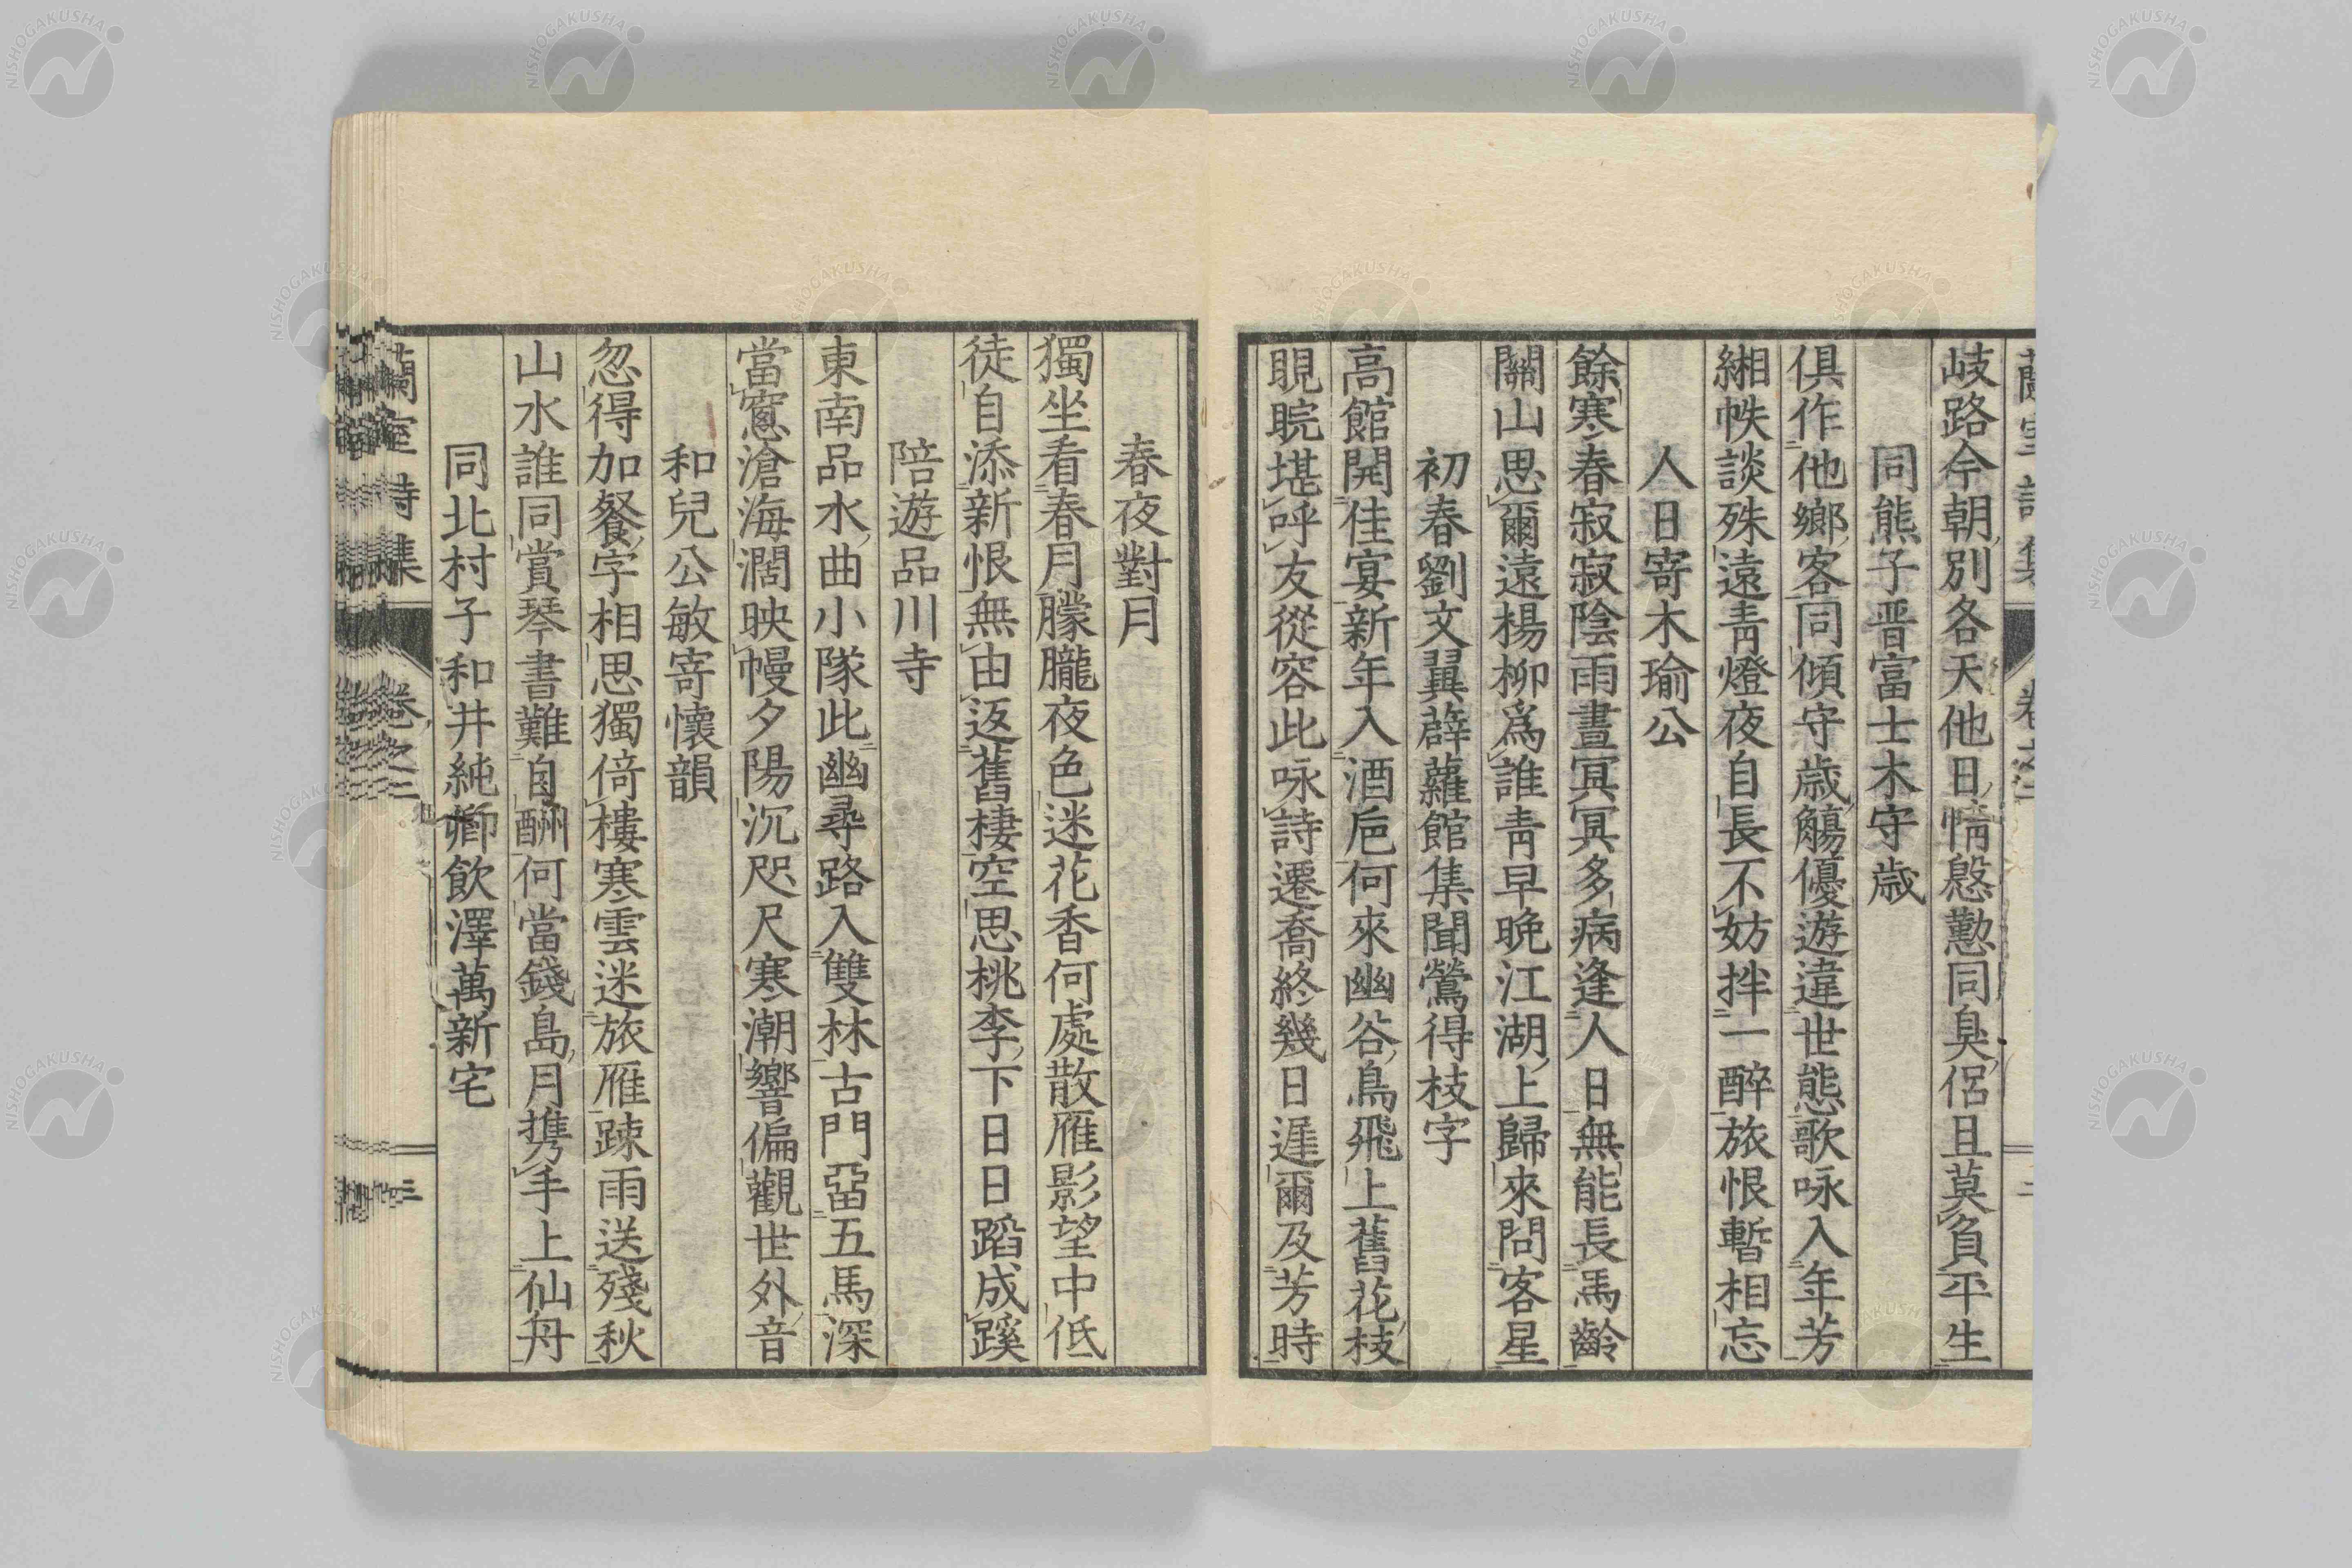 岐路今朝別各天他日情慇懃同臭侶且莫負平生
同熊子晋富士木守歳
俱作他鄉客同傾守歳觴優遊違世態歌咏入年芳
緗帙談殊遠青燈夜自長不妨拌一醉旅恨暫相忘
人日寄木瑜公
餘寒春寂寂陰雨晝冥冥多病逢人日無能長馬齡
關山思爾遠楊柳爲誰青早晚江湖上歸來問客星
初春劉文翼薜蘿館集聞鶯得枝字
高館開佳宴新年入酒巵何來幽谷鳥飛上舊花枝
睍睆堪呼友從容此咏詩遷喬終幾日遲爾及芳時
春夜對月
獨坐看春月朦朧夜色迷花香何處散雁影望中低
徒自添新恨無由返舊棲空思桃李下日日蹈成蹊
陪遊品川寺
東南品水曲小隊此幽尋路入雙林古門畱五馬深
當窻滄海濶映幔夕陽沉咫尺寒潮響偏觀世外音
和兒公敏寄懷韻
忽得加餐字相思獨倚樓寒雲迷旅雁踈雨送殘秋
山水誰同賞琴書難自酬何當錢島月携手上仙舟
同北村子和井純卿飲澤萬新宅
蘭室詩集 卷之二 三